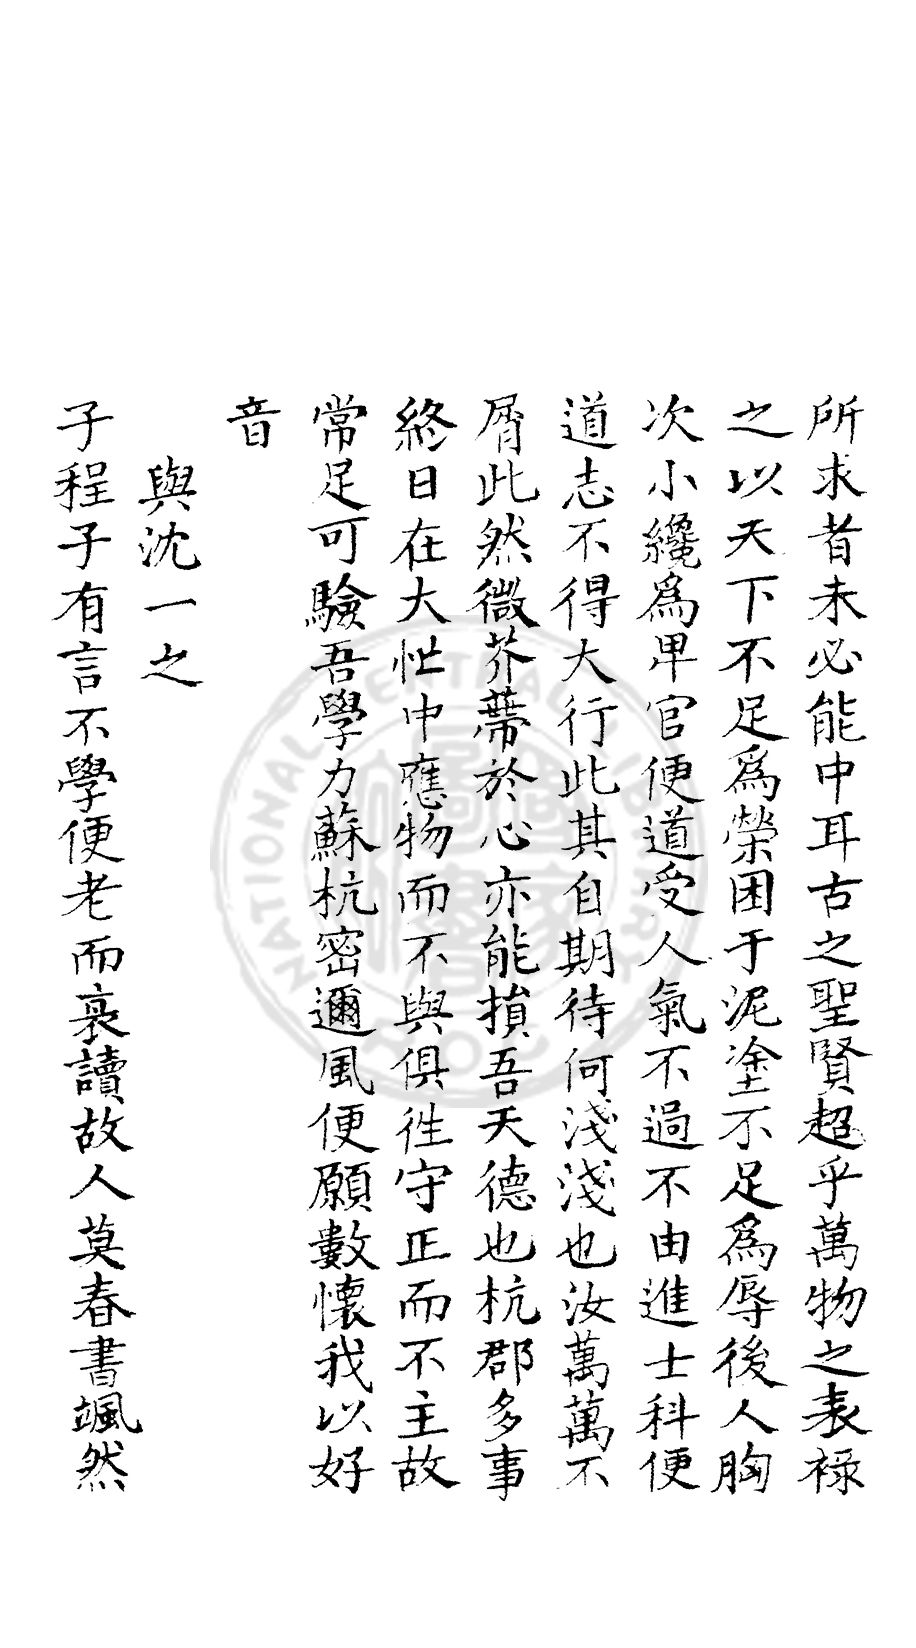 所求者未必能中耳古之聖賢超乎萬物之表祿
之以天下不足爲榮困于泥塗不足爲辱後人胸
次小纔爲卑官便道受人氣不過不由進士科便
道志不得大行此其自期待何淺淺也汝萬萬不
屑此然微芥蔕於心亦能損吾天德也杭郡多事
終日在大忙中應物而不與俱徃守正而不主故
常足可驗吾學力蘇杭密邇風便願數懷我以好
音
與沈一之
子程子有言不學便老而衰讀故人莫春書颯然
NATIONAL CENTRAL LIBRARY